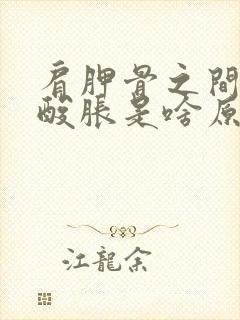 肩胛骨之間
酸脹是啥原
江龍余